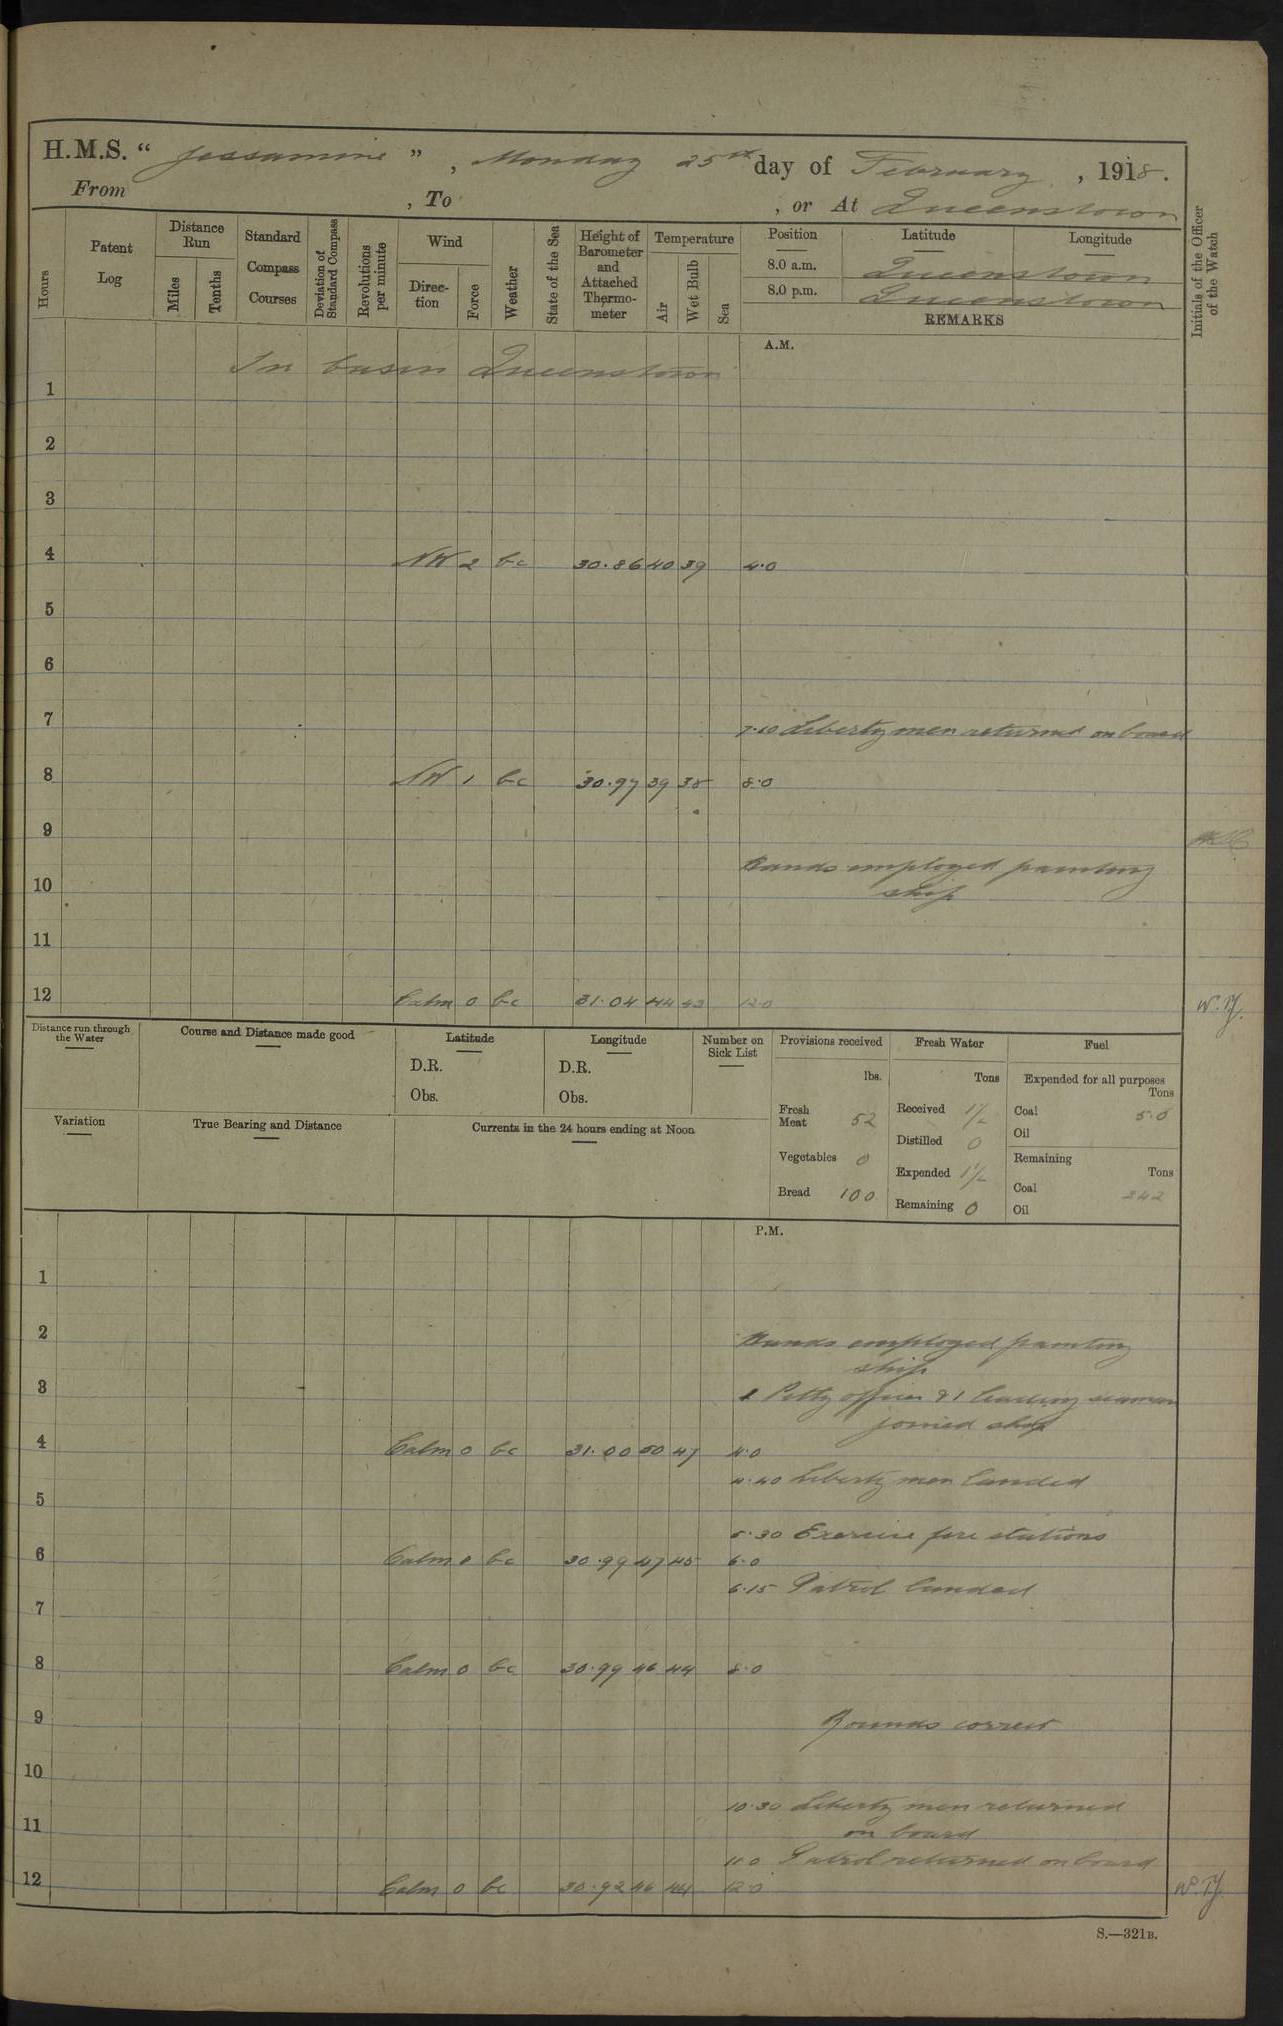 H.M.S. “ Jessamine ” , Monday 25th day of February , 1918.
From , To , or At Queenstown
Hours
Patent Log
Distance Run
Miles
Tenths
Standard Compass Courses
Deviation of Standard Compass
Revolutions per minute
Wind
Direction
Force
Weather
State of the Sea
Height of Barometer and Attached Thermometer
Temperature
Air
Wet Bulb
Sea
Position
Latitude
Longitude
8.0 a.m. Queenstown
8.0 p.m. Queenstown
REMARKS
Initials of the Officer of the Watch
A.M.
In basin Queenstown
1
2
3
4 NW 2 bc 30.86 40 39 4.0
5
6
7
7.10 Liberty men returned on board
8 NW 1 bc 30.97 39 38 8.0
9
Hands employed painting
ship
10
11
12 Calm 0 bc 31.04 44 43 12.0 W.T.J.
Distance run through the Water
Course and Distance made good
Latitude
D.R.
Obs.
Longitude
D.R.
Obs.
Number on Sick List
Variation
True Bearing and Distance
Currents in the 24 hours ending at Noon
Provisions received
lbs.
Fresh Meat 52
Vegetables 0
Bread 100
Fresh Water
Tons
Received 1½
Distilled 0
Expended 1½
Remaining 0
Fuel
Expended for all purposes
Tons
Coal 5.0
Oil
Remaining
Tons
Coal 242
Oil
P.M.
1
2
Hands employed painting
ship
3
1 Petty officer & 1 leading seaman
joined ship
4 Calm 0 bc 31.00 50 47 4.0
4.40 Liberty men landed
5
5.30 Exercise fire stations
6 Calm 0 bc 30.99 47 45 6.0
6.15 Patrol landed
7
8 Calm 0 bc 30.99 46 44 8.0
9
Rounds correct
10
10.30 Liberty men returned
on board
11
11.0 Patrol returned on board
12 Calm 0 bc 30.92 46 44 12.0
S.—321B.